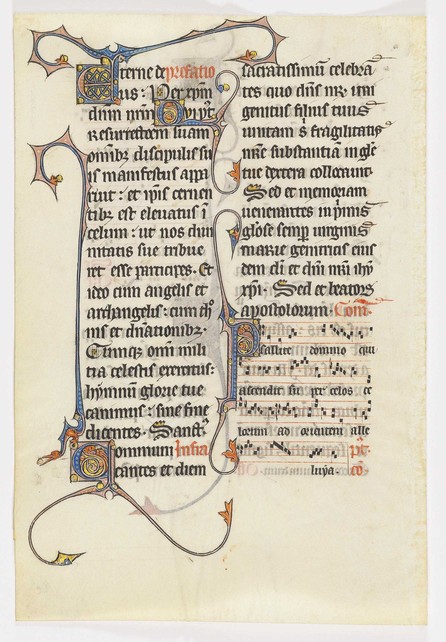 Eterne de prefatio
us : Per xp̄m
dn̄m nr̄m Qui post
Resurrectōem suam
omnibꝫ discipulis su
is manifestus appa
ruit : et ip̄is cernen
tibꝫ est eleuatus ī
celum : ut nos diui
nitatis sue tribue
ret esse participes. Et
ideo cum angelis et
archangelis : cum tho
nis et dn̄ationibꝫ.
Cumqꝫ om̄i mili
tia celestis exercitus:
hymnum glorie tue
canimus : sine fine
dicentes. Sanctꝰ
Communi Infra
cantes et diem
sacratissimū celebrā
tes quo dn̄s nr̄ uni
genitus filius tuus
unitam s̄ fragilitatis
nr̄e substantiam in gl̄e
tue dextera collocauit.
Sed et memoriam
uenerantes in p̄mis
gl̄ose semꝑ uirginis
marie genitricis eius
dem dī et dn̄i nr̄i ihū
xp̄i. Sed et beatoꝝ
apostolorum. Com̄.
Psallite domino qui
ascendit sup celos ce
lorum ad orientem alle
luya. co᷒